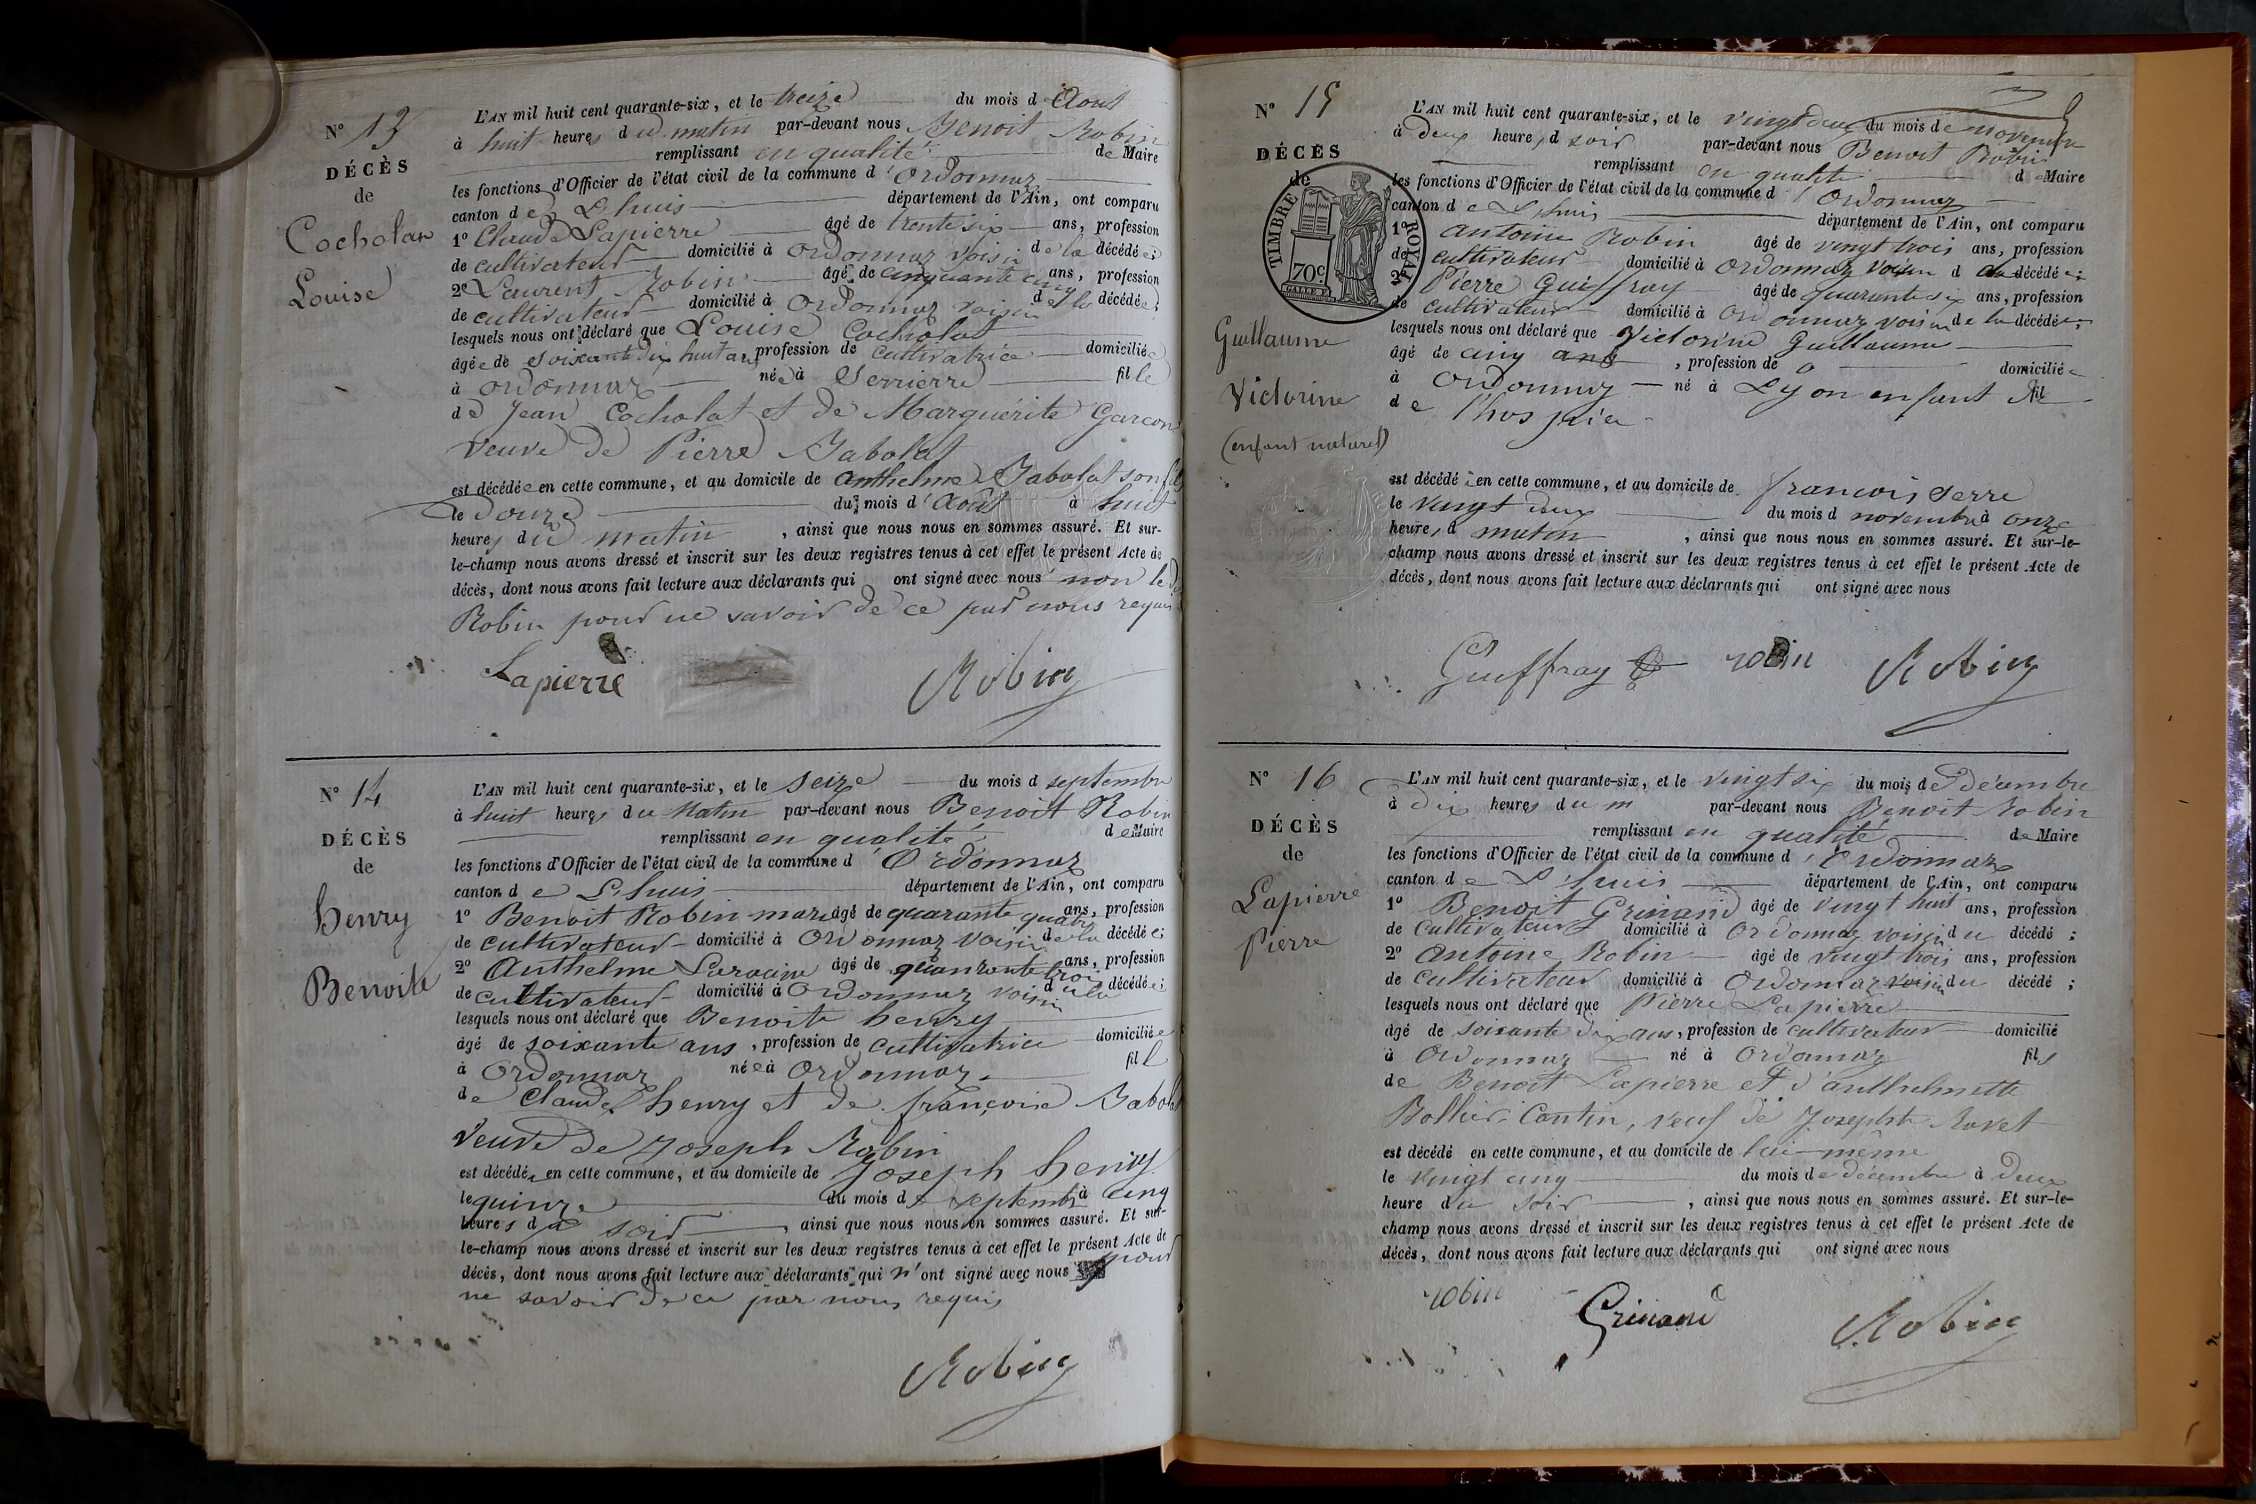 N° 13
DÉCÈS
de
Cocholat
Louise
L'AN mil huit cent quarante-six, et le treize du mois d'Aout
à huit heures du matin par-devant nous Benoit Robin
remplissant en qualité de Maire
les fonctions d'Officier de l'état civil de la commune d'Ordonnaz
canton de Lhuis département de l'Ain, ont comparu
1° Claude Lapierre âgé de trente six ans, profession
de cultivateur domicilié à Ordonnaz voisin de la décédée;
2° Laurent Robin âgé de cinquante cinq ans, profession
de cultivateur domicilié à Ordonnaz voisin de la décédée;
lesquels nous ont déclaré que Louise Cocholat
âgée de soixante dix huit ans profession de cultivatrice domiciliée
à Ordonnaz née à Serrierre fille
de Jean Cocholat et de Marguérite Garcon
veuve de Pierre Babolat
est décédée en cette commune, et au domicile de Anthelme Babolat son fils
le douze du mois d'Août à huit
heures du matin, ainsi que nous nous en sommes assuré. Et sur-
le-champ nous avons dressé et inscrit sur les deux registres tenus à cet effet le présent Acte de
décès, dont nous avons fait lecture aux déclarants qui ont signé avec nous non le d
Robin pour ne savoir de ce par nous requis
Lapierre Robin
N° 14
DÉCÈS
de
henry
Benoite
L'AN mil huit cent quarante-six, et le seize du mois d septembre
à huit heures du Matin par-devant nous Benoit Robin
remplissant en qualité de Maire
les fonctions d'Officier de l'état civil de la commune d'Ordonnaz
canton de Lhuis département de l'Ain, ont comparu
1° Benoit Robin âgé de quarante quatre ans, profession
de cultivateur domicilié à Ordonnaz voisin de la décédée;
2° Anthelme âgé de quanrante trois ans, profession
de cultivateur domicilié à Ordonnaz voisin de la décédée;
lesquels nous ont déclaré que Benoite henry
âgé de soixante ans, profession de cultivatrice domiciliée
à Ordonnaz née à Ordonnaz fill
de Claude henry et de françoise Babolat
veuve de Joseph Robin
est décédée en cette commune, et au domicile de Joseph henry
le quinze du mois de septembre à cinq
heures du soir, ainsi que nous nous en sommes assuré. Et sur-
le-champ nous avons dressé et inscrit sur les deux registres tenus à cet effet le présent Acte de
décès, dont nous avons fait lecture aux déclarants qui n'ont signé avec nous pour
ne savoir de ce par nous requis
Robin
N° 15
DÉCÈS
de
TIMBRE ROYAL
70c
Guillaume
Victorine
(enfant naturel)
L'AN mil huit cent quarante-six, et le vingt deux du mois de novembre
à deux heures d soir par-devant nous Benoit Robin
remplissant en qualité de Maire
les fonctions d'Officier de l'état civil de la commune d'Ordonnaz
canton de Lhuis département de l'Ain, ont comparu
1° Antoine Robin âgé de vingt trois ans, profession
de cultivateur domicilié à Ordonnaz voisin d la décédée;
2° Pierre Guiffray âgé de quarante six ans, profession
de cultivateur domicilié à Ordonnaz voisin de la décédée;
lesquels nous ont déclaré que Victorine Guillaume
âgé de cinq ans, profession de 0 domiciliée
à Ordonnaz né à Lyon enfant de
de l'hospice
est décédé en cette commune, et au domicile de françois Serre
le vingt deux du mois d novembre à onze
heures d matin, ainsi que nous nous en sommes assuré. Et sur-le-
champ nous avons dressé et inscrit sur les deux registres tenus à cet effet le présent Acte de
décès, dont nous avons fait lecture aux déclarants qui ont signé avec nous
Guiffray robin Robin
N° 16
DÉCÈS
de
Lapierre
Pierre
L'AN mil huit cent quarante-six, et le vingt six du mois de décembre
à dix heures du m par-devant nous Benoit Robin
remplissant en qualité de Maire
les fonctions d'Officier de l'état civil de la commune d'Ordonnaz
canton de Lhuis département de l'Ain, ont comparu
1° Benoit Grinand âgé de vingt huit ans, profession
de cultivateur domicilié à Ordonnaz voisin du décédé;
2° Antoine Robin âgé de vingt trois ans, profession
de cultivateur domicilié à Ordonnaz voisin du décédé;
lesquels nous ont déclaré que Pierre Lapierre
âgé de soixante dix ans, profession de cultivateur domicilié
à Ordonnaz né à Ordonnaz fils
de Benoit Lapierre et d'anthelmette
Bollier-Cantin, veuf de Josephte Rovet
est décédé en cette commune, et au domicile de lui-même
le vingt cinq du mois de décembre à deux
heure du soir, ainsi que nous nous en sommes assuré. Et sur-le-
champ nous avons dressé et inscrit sur les deux registres tenus à cet effet le présent Acte de
décès, dont nous avons fait lecture aux déclarants qui ont signé avec nous
robin Grinand Robin